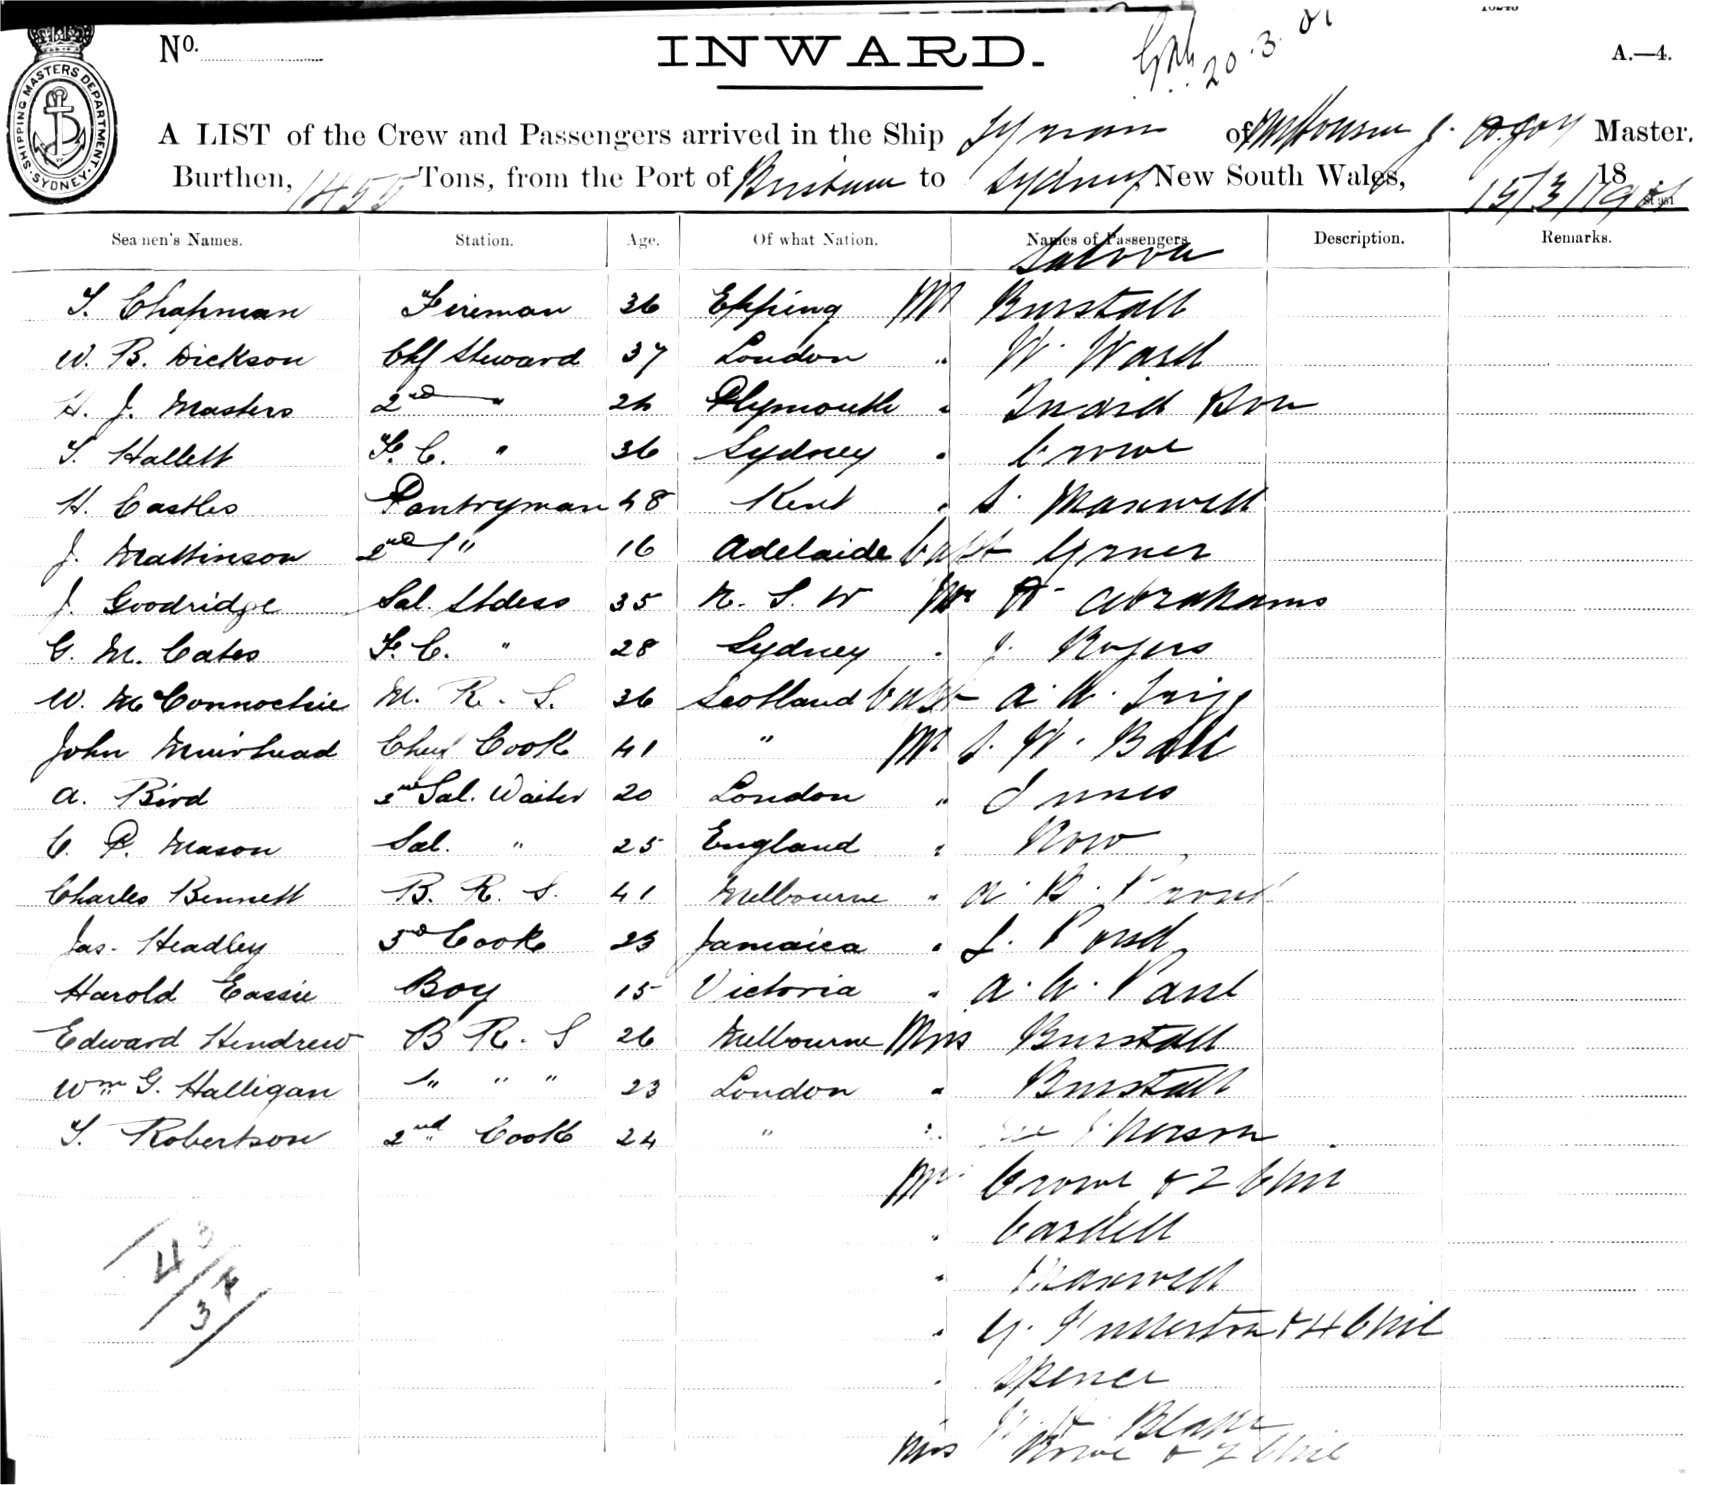 SHIPPING MASTERS DEPARTMENT. SYDNEY.
No.
INWARD.
20.3.01
A.—4.
A LIST of the Crew and Passengers arrived in the Ship of Master.
Burthen, 1455 Tons, from the Port of to Sydney New South Wales, 18 15/3/1901
Seamen's Names. Station. Age. Of what Nation. Names of Passengers Description. Remarks.
Saloon
T. Chapman Fireman 36 Epping Mr Burstall
W. B. Dickson Chf Steward 37 London " W. Ward
H. J. Masters 2nd " 26 Plymouth "
T. Hallett F. C. " 36 Sydney " Crowe
H. Castles Pantryman 48 Kent " S. Maxwell
J. Mattinson 2nd " 16 Adelaide Capt
J. Goodridge Sal. Stdess 35 N. S. W Mr A. Abrahams
C. M. Cates F. C. " 28 Sydney " J. Rogers
W. McConnochie M. R. S. 36 Scotland Capt A. W.
John Muirhead Chief Cook 41 " Mr S. W. Ball
A. Bird 2nd Sal. Waiter 20 London " Innes
C. P. Mason Sal. " 25 England "
Charles Bennett B. R. S. 41 Melbourne "
Jas. Headley 3d Cook 23 Jamaica " Ford
Harold Eassie Boy 15 Victoria " A. W. Paul
Edward Hendrew B R. S 26 Melbourne Mrs Burstall
Wm G. Halligan " " " 23 London " Burstall
T. Robertson 2nd Cook 24 " "
Crowe & 2 Chil
" Castell
" Maxwell
" Fullerton & 4 Chil
" Spencer
W. H.
Mrs Rowe & 2 Chil
43